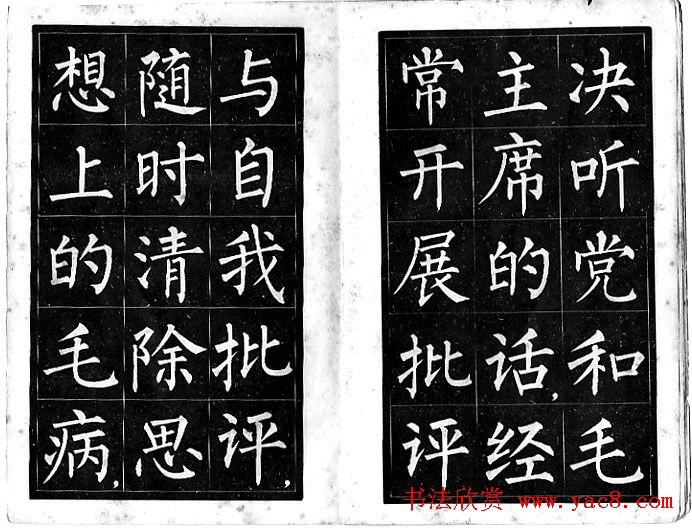 决听党和毛
主席的话，经
常开展批评
与自我批评，
随时清除思
想上的毛病，
书法欣赏 www.yac8.com